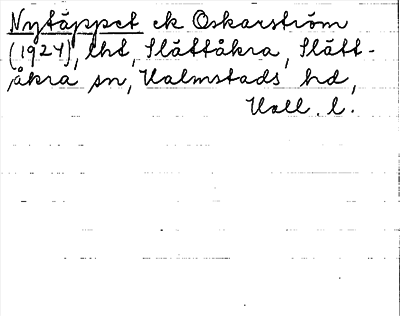 Nytäppet ek Oskarström
(1924), lht, Slättåkra, Slätt-
åkra sn, Halmstads hd,
Hall. l.